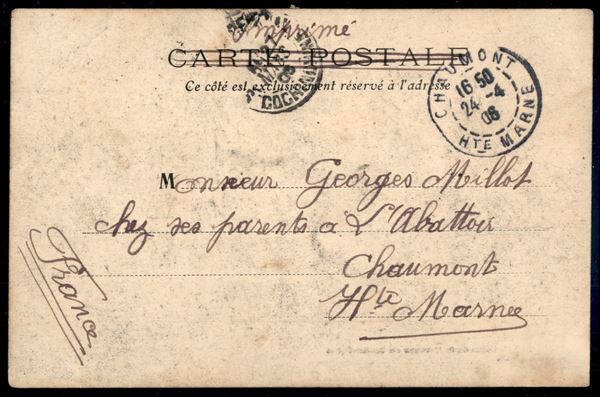 Imprimé
CARTE POSTALE
Ce côté est exclusivement réservé à l'adresse
CHAUMONT
16 50
24 -4
06
HTE MARNE
Monsieur Georges Millot
chez ses parents à L'Abattoir
Chaumont
Hte Marne
France